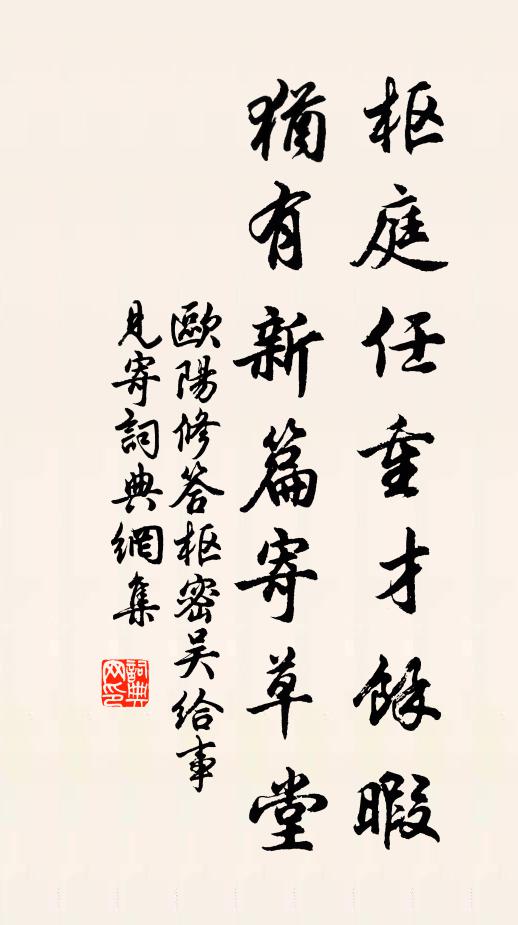 枢庭任重才餘暇
猶有新篇寄草堂
歐陽修答枢密吴给事
見寄詞典網集
詞典网印